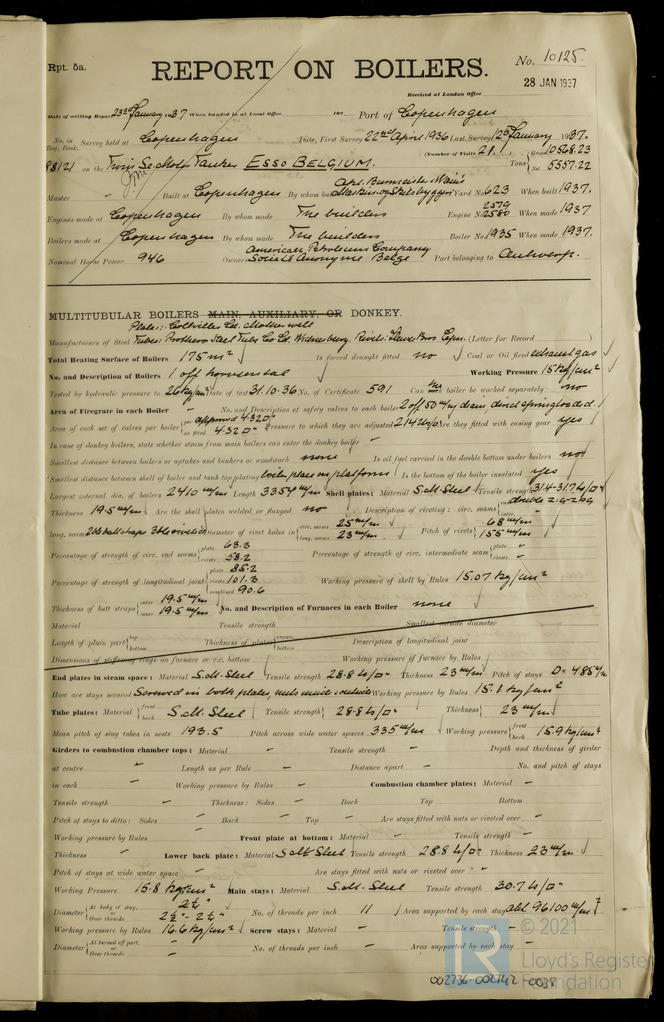 Rpt. 5a.
No. 10125.
REPORT ON BOILERS.
28 JAN 1937
Received at London Office
Date of writing Report 23rd January 1937 When handed in at Local Office 19 Port of Copenhagen
No. in Reg. Book. Survey held at Copenhagen Date, First Survey 22nd April 1936 Last Survey 12th January 1937.
(Number of Visits 21.) Gross 10568.23
98121 on the Twin Sc. Motor Tanker ESSO BELGIUM. Tons Net 5557.22
Master Built at Copenhagen By whom built Akt. Burmeister & Wain's Maskin og Skibsbyggeri Yard No. 623 When built 1937.
Engines made at Copenhagen By whom made The builders Engine No. 2579 2580 When made 1937
Boilers made at Copenhagen By whom made The builders Boiler No. 1935 When made 1937.
Nominal Horse Power 946 Owners American Petroleum Company Société Anonyme Belge Port belonging to Antwerp.
MULTITUBULAR BOILERS MAIN, AUXILIARY, OR DONKEY.
Plates: Colvilles Ld. Motherwell
Manufacturers of Steel Tubes: (Letter for Record )
Total Heating Surface of Boilers 175 m² Is forced draught fitted no Coal or Oil fired exhaust gas
No. and Description of Boilers 1 off horizontal Working Pressure 15 kg/cm²
Tested by hydraulic pressure to 26 kg/cm² Date of test 31.10.36 No. of Certificate 591 Can the boiler be worked separately no
Area of Firegrate in each Boiler - No. and Description of safety valves to each boiler 2 off 50 m/m diam, direct springloaded.
Area of each set of valves per boiler per Rule approved 4320 as fitted 4320 Pressure to which they are adjusted Are they fitted with easing gear yes
In case of donkey boilers, state whether steam from main boilers can enter the donkey boiler -
Smallest distance between boilers or uptakes and bunkers or woodwork none Is oil fuel carried in the double bottom under boilers no
Smallest distance between shell of boiler and tank top plating boiler placed on platform Is the bottom of the boiler insulated yes
Largest internal dia. of boilers 2410 m/m Length 3354 m/m Shell plates: Material S.M. Steel Tensile strength 31.4-31.7 t/□"
Thickness 19.5 m/m Are the shell plates welded or flanged no Description of riveting: circ. seams double zig-zag
long. seams Diameter of rivet holes in circ. seams 25 m/m long. seams 23 m/m Pitch of rivets 68 m/m 155 m/m
Percentage of strength of circ. end seams plate 63.3 rivets 58.2 Percentage of strength of circ. intermediate seam plate - rivets -
Percentage of strength of longitudinal joint plate 85.2 rivets 101.3 combined 90.6 Working pressure of shell by Rules 15.07 kg/cm²
Thickness of butt straps outer 19.5 m/m inner 19.5 m/m No. and Description of Furnaces in each Boiler none
Material Tensile strength Smallest outside diameter
Length of plain part top bottom Thickness of plates crown bottom Description of longitudinal joint
Dimensions of stiffening rings on furnace or c.c. bottom Working pressure of furnace by Rules
End plates in steam space: Material S.M. Steel Tensile strength 28.8 t/□" Thickness 23 m/m Pitch of stays D=485 m/m
How are stays secured Screwed in both plates, nuts inside & outside Working pressure by Rules 15.1 kg/cm²
Tube plates: Material front back S.M. Steel Tensile strength 28.8 t/□" Thickness 23 m/m
Mean pitch of stay tubes in nests 193.5 Pitch across wide water spaces 335 m/m Working pressure front back 15.9 kg/cm²
Girders to combustion chamber tops: Material - Tensile strength - Depth and thickness of girder
at centre - Length as per Rule - Distance apart - No. and pitch of stays
in each - Working pressure by Rules - Combustion chamber plates: Material -
Tensile strength - Thickness: Sides - Back Top Bottom
Pitch of stays to ditto: Sides - Back - Top - Are stays fitted with nuts or riveted over -
Working pressure by Rules Front plate at bottom: Material - Tensile strength -
Thickness - Lower back plate: Material S.M. Steel Tensile strength 28.8 t/□" Thickness 23 m/m
Pitch of stays at wide water space - Are stays fitted with nuts or riveted over -
Working Pressure 15.8 kg/cm² Main stays: Material S.M. Steel Tensile strength 30.7 t/□"
Diameter At body of stay, 2½" Over threads 2½"-2½" No. of threads per inch 11 Area supported by each stay abt. 96100 m/m²
Working pressure by Rules 16.6 kg/cm² Screw stays: Material - Tensile strength -
Diameter At turned off part, or Over threads - No. of threads per inch - Area supported by each stay -
© 2021
Lloyd's Register
Foundation
002736-002742-0039